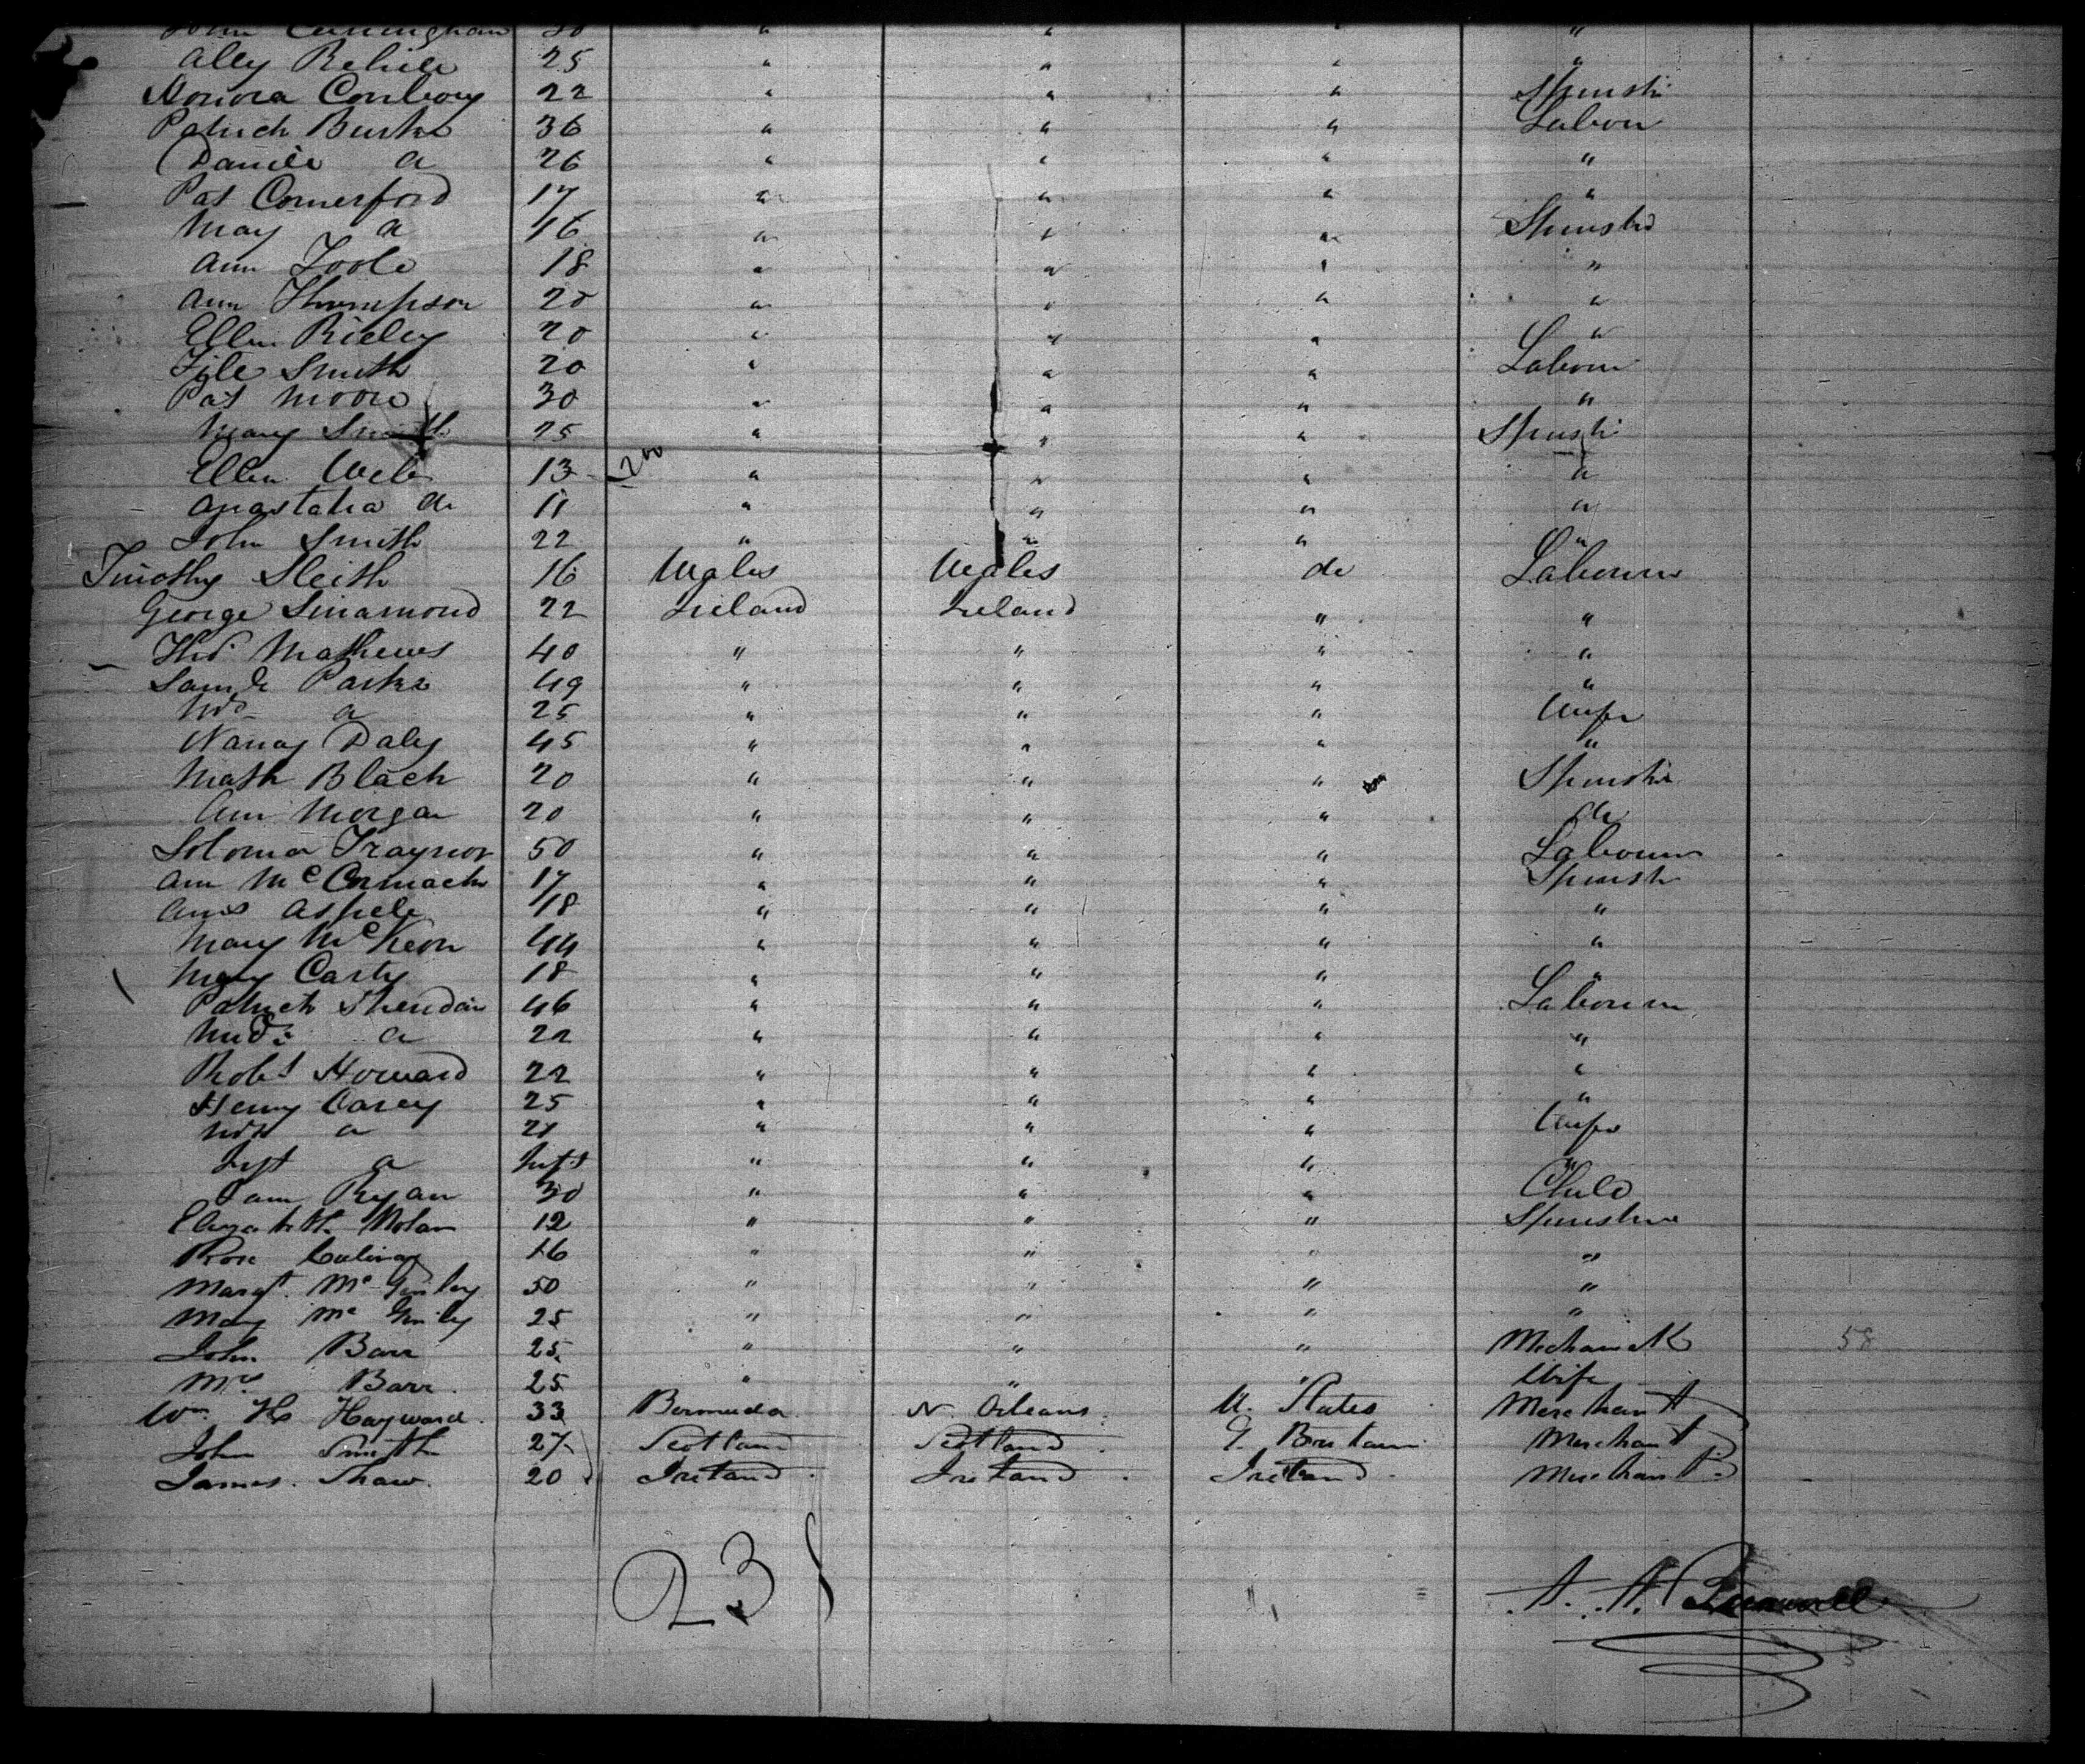 John Cunningham 30 " " " "
Ally 25 " " " "
Honora Conboy 22 " " " Spinstr
Patrick Burke 36 " " " Labour
Daniel a 26 " " " "
Pat Comerford 17 " " " "
May a 16 " " " Spinster
Ann Toole 18 " " " "
Ann Thompson 20 " " " "
Ellen Rieley 20 " " " "
Smith 20 " " " Labour
Pat Moore 30 " " " "
Mary Smith 25 " " " Spinstr
Ellen Web 13 200 " " " "
Anastatia do 11 " " " "
John Smith 22 " " " "
Timothy Sleith 16 Wales Wales do Labourer
George Sinamond 22 Ireland Ireland " "
Thos Mathews 40 " " " "
Saml Parke 49 " " " "
Mrs a 25 " " " Wife
Nancy Daly 45 " " " "
Math Black 20 " " " Spinstr
Ann Morgan 20 " " " do
Soloma Traynor 50 " " " Labourer
Ann McCormack 17 " " " Spinstr
Ann 18 " " " "
Mary McKeon 44 " " " "
Mary Carty 18 " " " "
Patrick Sheridan 46 " " " Labourer
a 22 " " " "
Robt Howard 22 " " " "
Henry Carey 25 " " " "
Mrs a 21 " " " Wife
Inft a Inft " " " "
Ryan 30 " " " Child
Elizabeth Nolan 12 " " " Spinster
Rose 16 " " " "
Margt. Mc Ginley 50 " " " "
Mary Mc Ginley 25 " " " "
John Barr 25 " " " Mechanick 58
Mrs Barr 25 " " " Wife
Wm H Hayward 33 Bermuda N. Orleans U. States Merchant
John Smith 27 Scotland Scotland G. Britain Merchant
James Shaw 20 Ireland Ireland Ireland Merchant
23